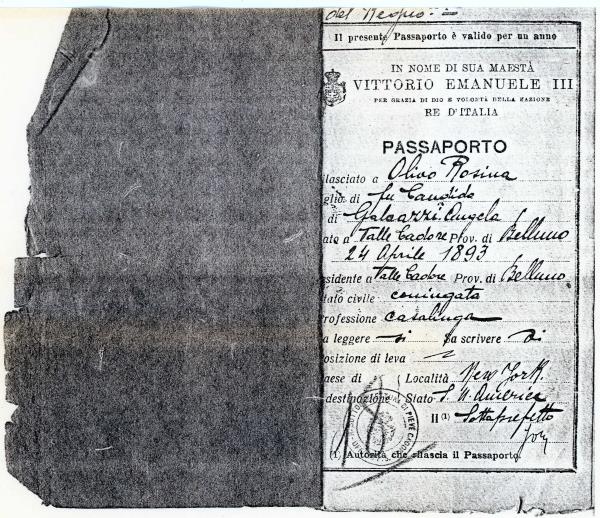 del Regno. =
Il presente Passaporto è valido per un anno
IN NOME DI SUA MAESTÀ
VITTORIO EMANUELE III
PER GRAZIA DI DIO E VOLONTÀ DELLA NAZIONE
RE D'ITALIA
PASSAPORTO
ilasciato a Olivo Rosina
glia di fu Candido
di Galeazzi Angela
ato a Valle Cadore Prov. di Belluno
24 Aprile 1893
sidente a Valle Cadore Prov. di Belluno
tato civile coniugata
rofessione casalinga
a leggere si Sa scrivere si
osizione di leva
aese di Località New York
destinazione Stato S. U. America
Il (1) Sottoprefetto
DI PIEVE
(1) Autorità che rilascia il Passaporto.